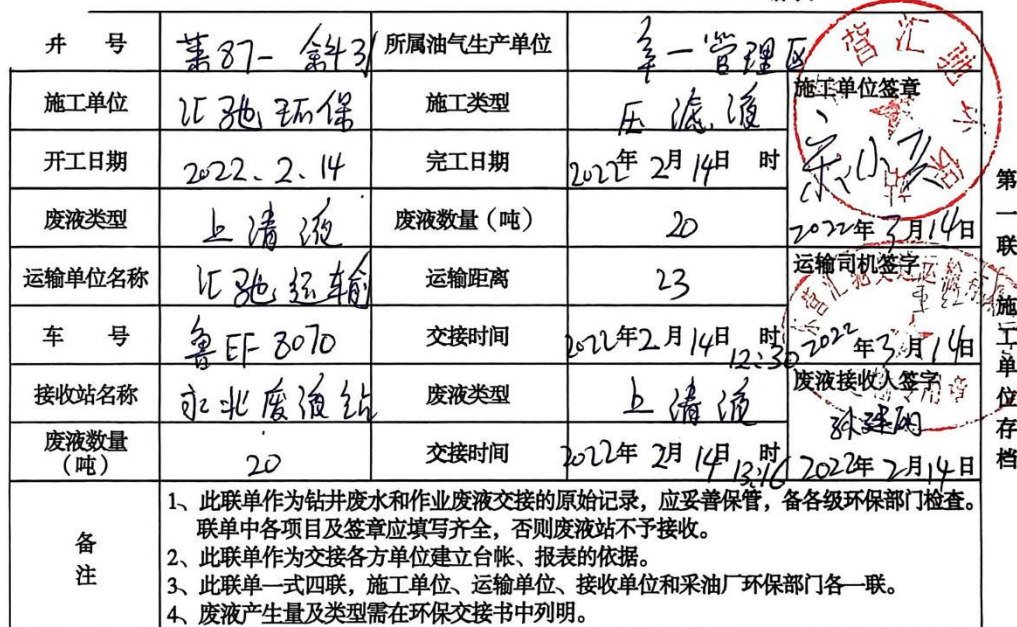 井 号 莱87-斜31 所属油气生产单位 辛一管理区
施工单位 汇驰环保 施工类型 压滤液 施工单位签章
开工日期 2022.2.14 完工日期 2022年2月14日 时
废液类型 上清液 废液数量（吨） 20 2022年3月14日
运输单位名称 汇驰运输 运输距离 23 运输司机签字
车 号 鲁EF8070 交接时间 2022年2月14日 时 12:30 2022年3月14日
接收站名称 永北废液站 废液类型 上清液 废液接收人签字
废液数量（吨） 20 交接时间 2022年2月14日 时 13:16 2022年2月14日
备注
1、此联单作为钻井废水和作业废液交接的原始记录，应妥善保管，备各级环保部门检查。
联单中各项目及签章应填写齐全，否则废液站不予接收。
2、此联单作为交接各方单位建立台帐、报表的依据。
3、此联单一式四联，施工单位、运输单位、接收单位和采油厂环保部门各一联。
4、废液产生量及类型需在环保交接书中列明。
第一联 施工单位存档